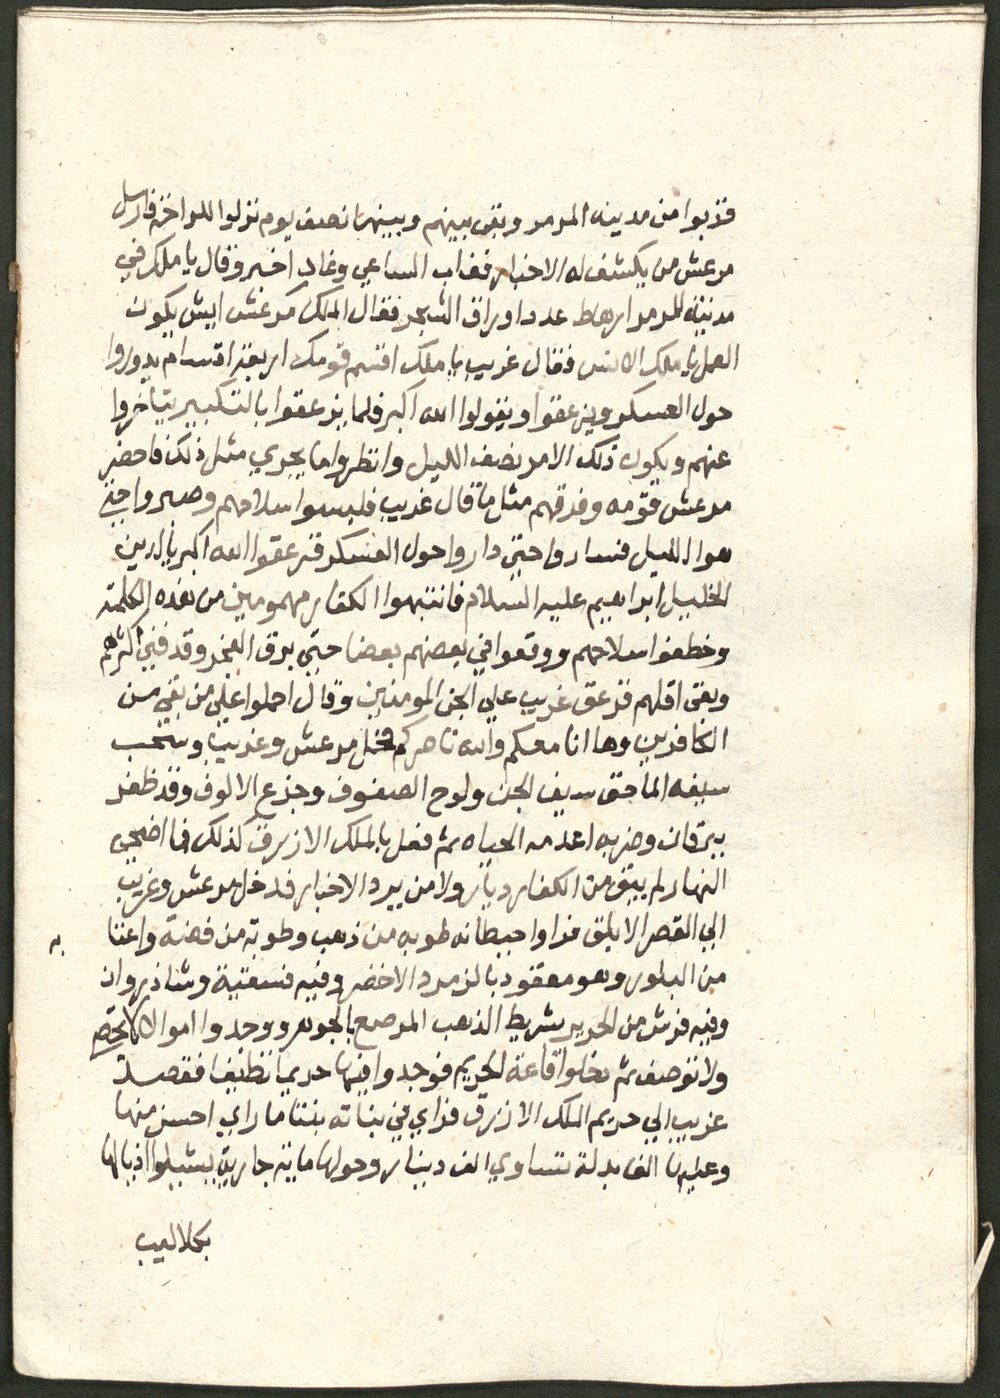 قربوا من مدينة المرمر وبقي بينهم وبينها نصف يوم نزلوا للراحة فارسل
مرعش من يكشف له الاخبار فغاب الساعي وعاد اخبر وقال يا ملك في
مدينة المرمر ارهاط عدد اوراق الشجر فقال الملك مرعش ايش يكون
العمل يا ملك الانس فقال غريب يا ملك اقسم قومك اربعة اقسام يدوروا
حول العسكر ويزعقوا ويقولوا الله اكبر فلما يزعقوا بالتكبير يتاخروا
عنهم ويكون ذلك الامر نصف الليل وانظروا ما يجري مثل ذلك فاحضر
مرعش قومه وفرقهم مثل ما قال غريب فلبسوا سلاحهم وصبروا حتي
هوا الليل فساروا حتي داروا حول العسكر فزعقوا الله اكبر يا لدين
الخليل ابراهيم عليه السلام فانتبهوا الكفار مهمومين من هذه الكلمة
وخطفوا سلاحهم ووقعوا في بعضهم بعضا حتي برق الفجر وقد فني اكثرهم
وبقي اقلهم فزعق غريب علي الجن المومنين وقال احملوا علي من بقي من
الكافرين وها انا معكم والله ناصركم فحمل مرعش وغريب وسحب
سيفه الماحق سيف الجن ولوح الصفوف وجزع الالوف وقد ظفر
ببرقان وضربه اعدمه الحياه ثم فعل بالملك الازرق كذلك فما اضحي
النهار لم يبق من الكفار ديار ولا من يرد الاخبار فدخل مرعش وغريب
الي القصر الابلق فراوا حيطانه طوبه من ذهب وطوبة من فضة واعتا
به
من البلور وهو معقود بالزمرد الاخضر وفيه فسقية وشاذروان
وفيه فرش من الحرير بشريط الذهب المرصع بالجوهر ووجدوا اموالا لا تحصر
ولا توصف ثم دخلوا قاعة الحريم فوجدوا فيها حريما نظيفا فقصد
غريب الي حريم الملك الازرق فراي في بناته بنتا ما راي احسن منها
وعليها بدلة تساوي الف دينار وحولها ماية جارية يشيلوا اذيالها
بكلاليب